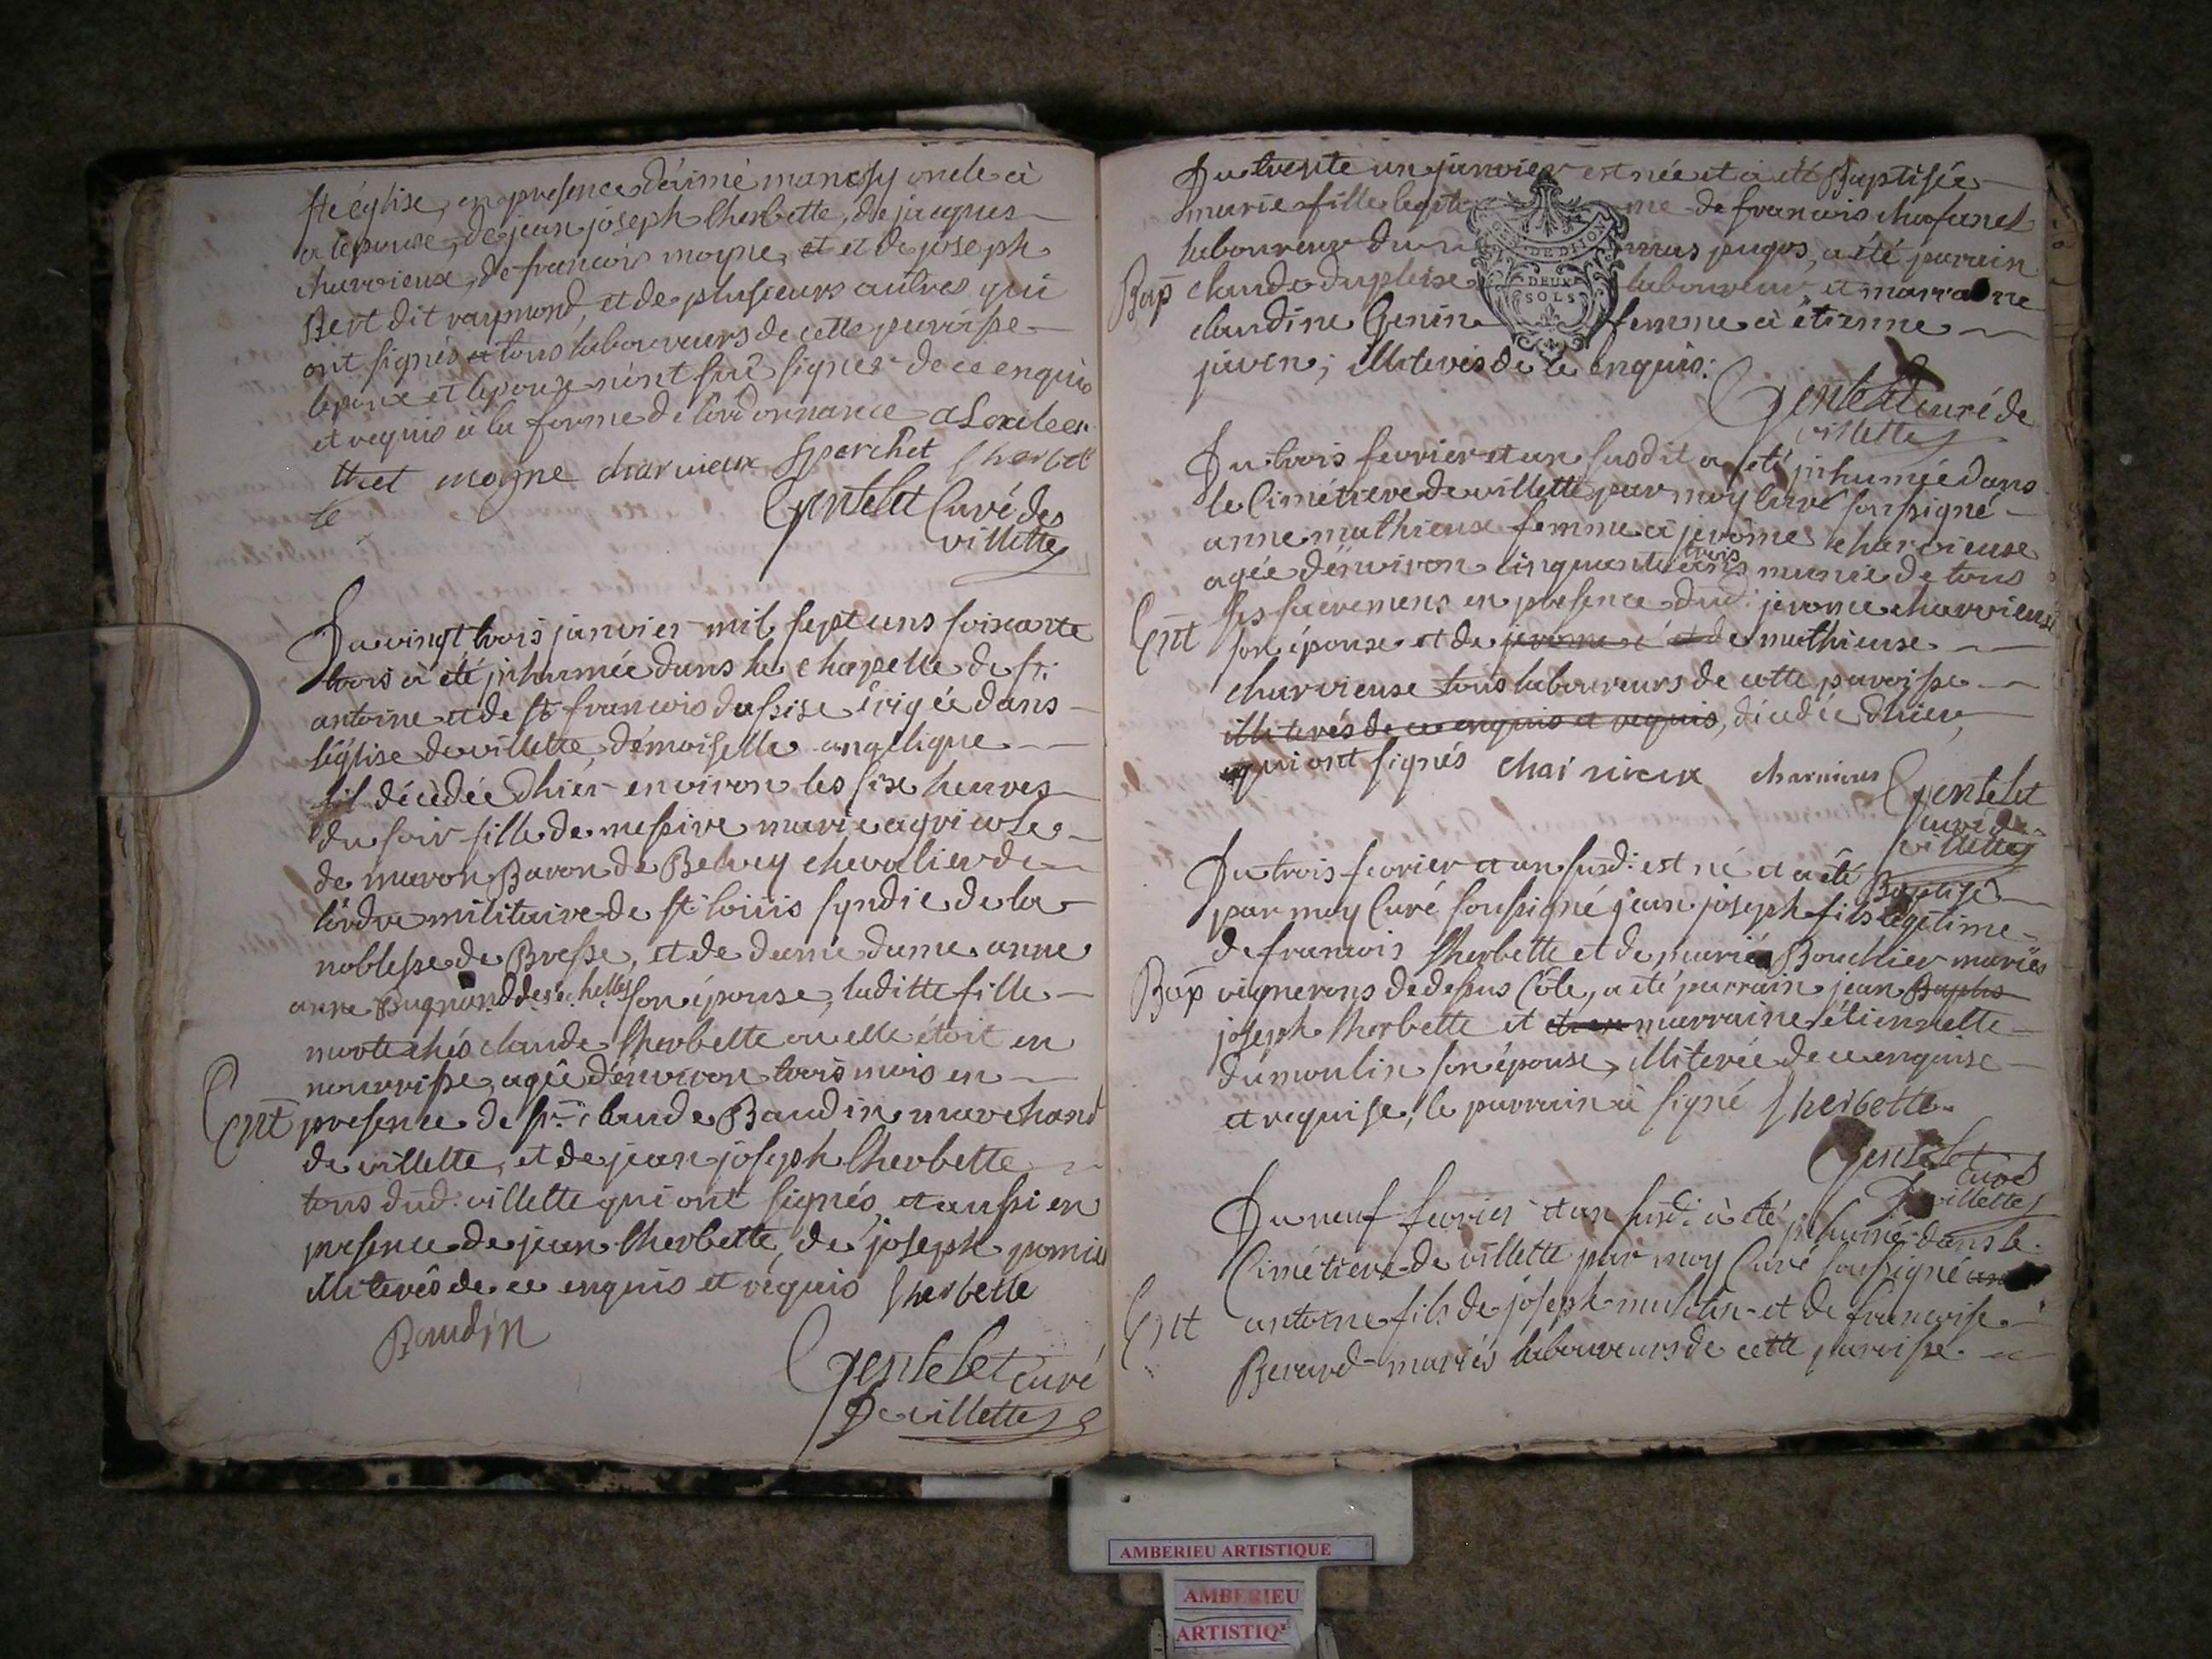 ste église, en presence d'aimé mancsy oncle à
a lepouse, de jean joseph lherbette, de jacques
charvieux, de francois moyne, et et de joseph
Bert dit raymond, et de plusieurs autres qui
ont signés et tous laboureurs de cette paroisse
lepouse et lepoux n'ont sçu signer de ce enquis
et requis à la forme de l'ordonnance
moyne charvieux perchet lherbet
te
Gentelet Curé de
villette
Du vingt trois janvier mil sept cens soixante
trois à été inhumée dans la chapelle de st.
antoine et de st francois dassise érigée dans
l'église de villette, démoiselle angelique
décédée d'hier environ les six heures
du soir fille de messire marie agricole
de maron Baron de Belvey chevalier de
l'ordre militaire de st. loüis syndic de la
noblesse de Bresse, et de dame dame anne
anne Bugnand des echelles son épouse, laditte fille
morte chés claude lherbette ou elle étoit en
nourrisse, agée d'environ trois mois en
Ent presence de sr. claude Baudin marchand
de villette, et de jean joseph lherbette
tous dud. villette qui ont signés, et aussi en
presence de jean lherbette, de joseph
illiterés de ce enquis et réquis lherbette
Baudin
Gentelet curé
De villette
Du trente un janvier est née et à été Baptisée
marie fille legit me de francois chafanel
laboureur du mas pugos, a été parain
Bap claude duplese laboureur et marraine
claudine Genin femme à étienne
juven; illiterés de ce enquis.
Gentelet curé de
villette
Du trois fevrier et an susdit a été inhumée dans
le Cimétiere de villette par moy Curé soussigné
anne mathieux femme à jerôme charvieux
trois
agée d'environ cinquante ans munie de tous
Ent ses sacremens en presence dud. jerome charvieux
son épouse et de jerome et de mathieuse
charvieuse tous laboureurs de cette paroisse
illiterés de ce enquis et requis, décedée d'hier,
qui ont signés charvieux charvieux Gentelet
curé de
villette
Du trois fevrier et an susd. est né et a été Baptisé
par moy Curé soussigné jean joseph fils légitime
de francois lherbette et de marie Bouchier mariés
Bap vignerons de dessus Côte, a été parrain jean Baptis
joseph lherbette et marraine étiennette
dumoulin son épouse, illiterée de ce enquise
et requise, le parrain à signé lherbette
Gentelet
curé
De villette
Du neuf fevrier et an susd. à été inhumé dans le
Cimétiere de villette par moy Curé soussigné
Ent antoine fils de joseph et de francoise
Berard mariés laboureurs de cette paroisse
GEN. DE DIJON
DEUX
SOLS
AMBERIEU ARTISTIQUE
AMBERIEU
ARTISTIQ